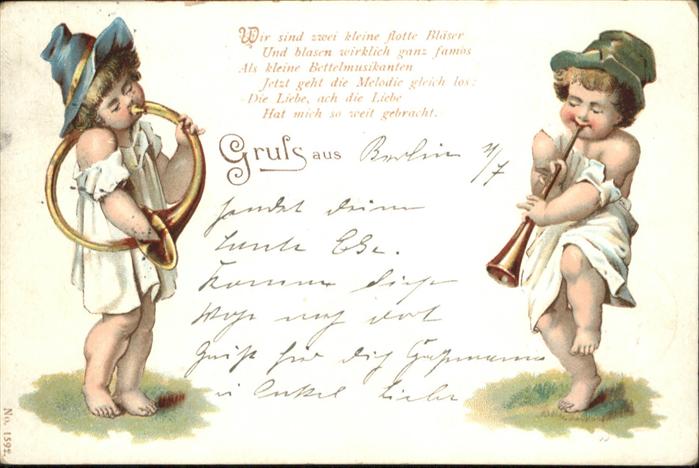 Wir sind zwei kleine flotte Bläser
Und blasen wirklich ganz famos
Als kleine Bettelmusikanten
Jetzt geht die Melodie gleich los:
Die Liebe, ach die Liebe
Hat mich so weit gebracht.
Gruss aus Berlin 4/7
sendet deine
Tante Else.
Komme diese
noch
Gruß für dich
Onkel
No. 1592.